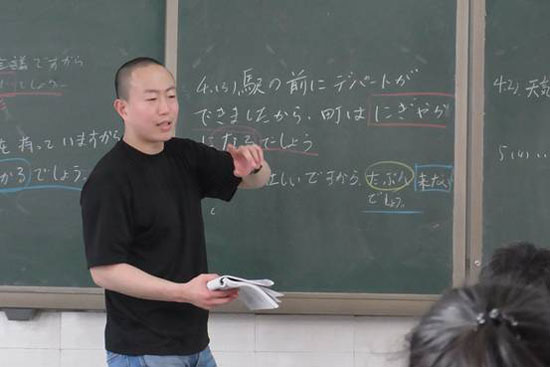 会議ですから
でしょう
を持っていますから
かるでしょう.
4.(3).駅の前にデパートが
できましたから、町はにぎやか
になるでしょう
忙しいですから、たぶん来な
でしょう。
4.2).天
5(4)